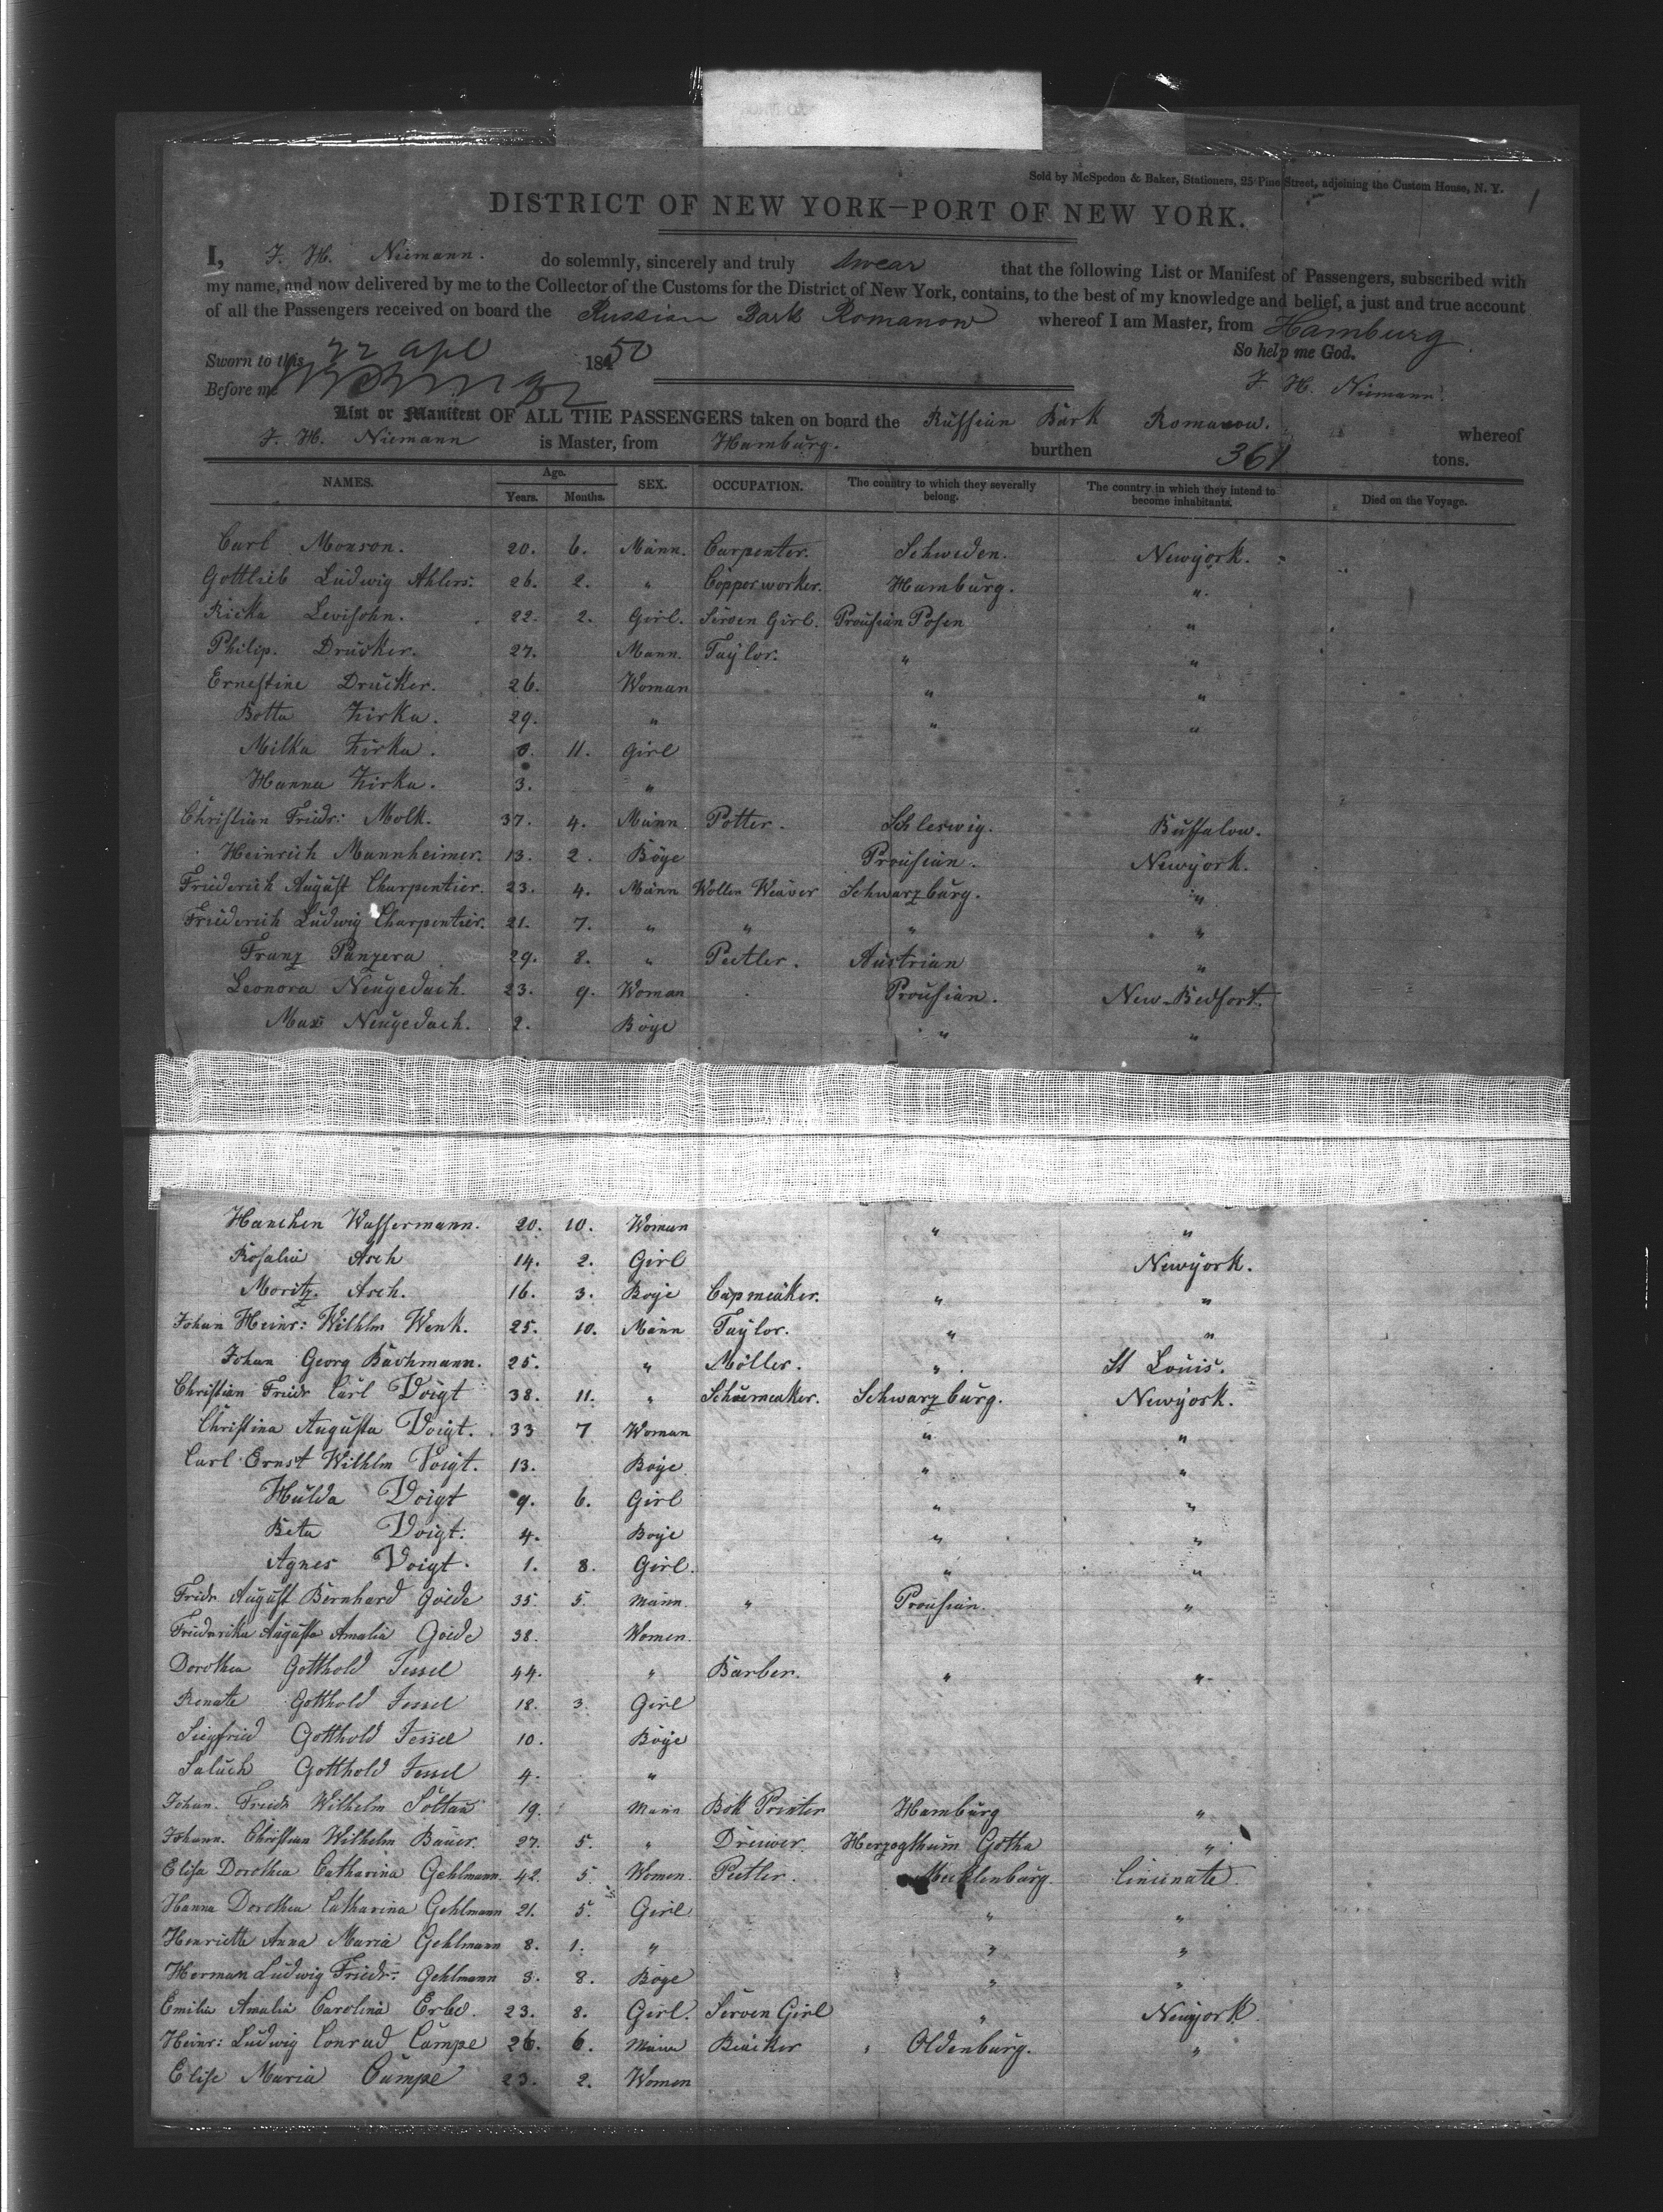 Sold by McSpedon & Baker, Stationers, 25 Pine Street, adjoining the Custom House, N. Y.
1
DISTRICT OF NEW YORK—PORT OF NEW YORK.
I, J. H. Niemann. do solemnly, sincerely and truly swear that the following List or Manifest of Passengers, subscribed with
my name, and now delivered by me to the Collector of the Customs for the District of New York, contains, to the best of my knowledge and belief, a just and true account
of all the Passengers received on board the Russian Bark Romanow whereof I am Master, from Hamburg.
Sworn to this 22 apl 1850 So help me God.
Before me J. H. Niemann.
List or Manifest OF ALL THE PASSENGERS taken on board the Russian Bark Romanow. whereof
J. H. Niemann is Master, from Hamburg. burthen 361 tons.
NAMES. Age. Years. Months. SEX. OCCUPATION. The country to which they severally belong. The country in which they intend to become inhabitants. Died on the Voyage.
Carl Monson. 20. 6. Männ. Carpenter. Schweden. Newyork.
Gottlieb Ludwig Ahlers. 26. 2. " Copperworker. Hamburg. "
Ricka Levisohn. 22. 2. Girl. Serven Girl. Prousian Posen "
Philip. Drucker. 27. Mann. Taylor. " "
Ernestine Drucker. 26. Woman " "
Botta Zirka. 29. " " "
Milka Zirka. 0. 11. Girl
Hanna Zirka. 3. "
Christian Friedr: Molk. 37. 4. Männ Potter. Schleswig. Buffalow.
Heinrich Mannheimer. 13. 2. Boye Prousian. Newyork.
Friederich August Charpentier. 23. 4. Männ Wollen Weaver Schwarzburg. "
Friederich Ludwig Charpentier. 21. 7. " " " "
Franz Panzera 29. 8. " Peetler. Austrian "
Leonora Neugedach. 23. 9. Woman Prousian. New-Bedfort.
Max Neugedach. 2. Boye " "
Hanchen Wassermann. 20. 10. Woman " "
Rosalia Asch 14. 2. Girl Newyork.
Moritz. Asch. 16. 3. Boye Capmeaker. " "
Johan Heinr: Wilhlm Wenk. 25. 10. Männ Taylor. " "
Johan Georg Bachmann. 25. " Möller. " St Louis.
Christian Friedr Carl Voigt 38. 11. " Schumeaker. Schwarzburg. Newyork.
Christina Augusta Voigt. 33 7 Woman " "
Carl Ernst Wilhlm Voigt. 13. Boye " "
Hulda Voigt 9. 6. Girl " "
Beta Voigt. 4. Boye " "
Agnes Voigt. 1. 8. Girl. " "
Fridr August Bernhard Goede 35. 5. Männ. " Prousian. "
Friederika Augusta Amalia Goede 38. Women.
Dorothea Gotthold Jessel 44. " Barber. " "
Renate Gotthold Jessel 18. 3. Girl
Siegfried Gotthold Jessel 10. Boye
Saluch Gotthold Jessel 4. "
Johan. Friedr Wilhelm Soltau 19. Mann Bok Printer Hamburg "
Johann. Christian Wilhelm Bauer. 27. 5. " Dreiver. Herzogthum Gotha "
Elisa Dorothea Catharina Gehlmann. 42. 5. Women. Peetler. Mecklenburg. Cincinate.
Hanna Dorothea Catharina Gehlmann 21. 5. Girl " "
Henriette Anna Maria Gehlmann 8. 1. " " "
Herman Ludwig Friedr: Gehlmann 3. 8. Boye " "
Emilia Amalia Carolina Erbe. 23. 8. Girl. Serven Girl " Newyork.
Heinr: Ludwig Conrad Campe 26. 6. Männ Beacker Oldenburg. "
Elise Maria Campe 23. 2. Women